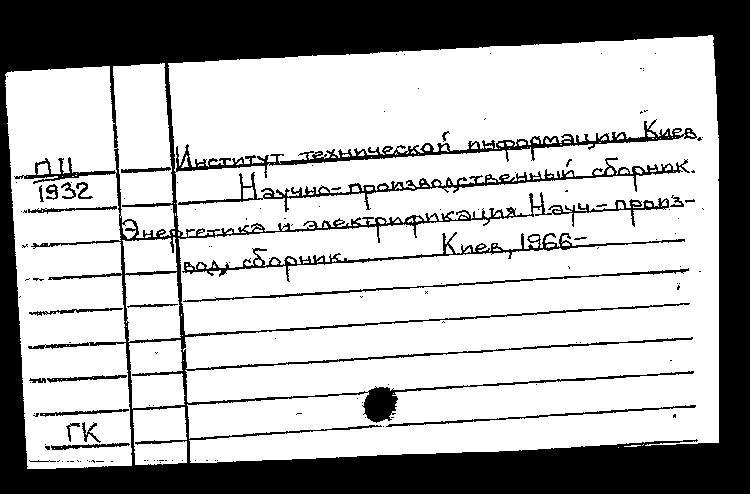 Институт технической информации. Киев.
ПЦ
1932
Научно-производственный сборник.
Энергетика и электрификация. Науч.-произ-
вод. сборник. Киев, 1966-
ГК